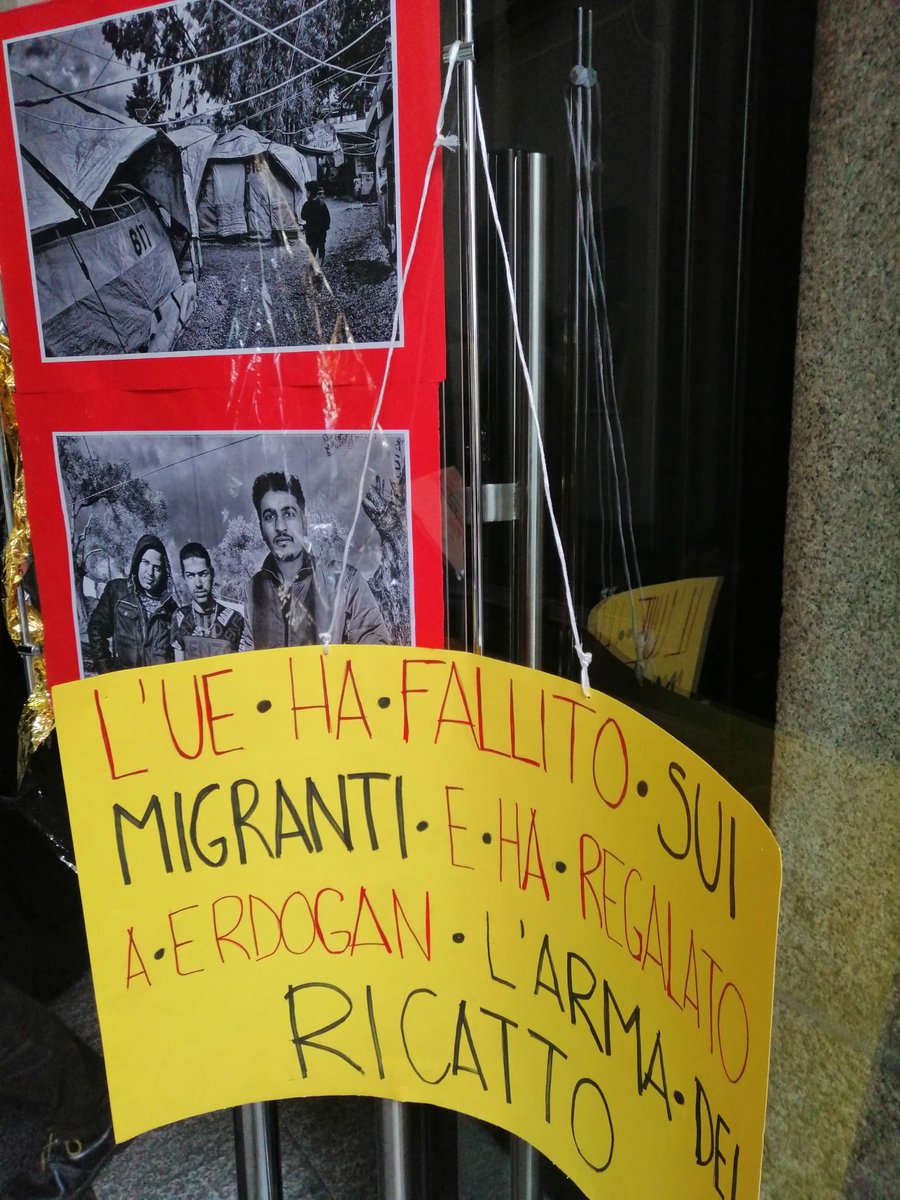 617
L'UE • HA • FALLITO • SUI
MIGRANTI • E • HA • REGALATO
A • ERDOGAN • L'ARMA • DEL
RICATTO